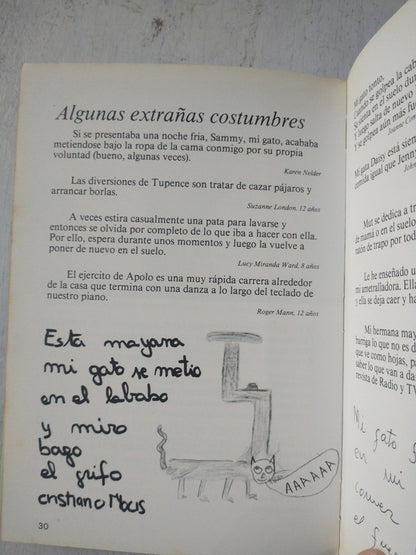 Algunas extrañas costumbres
Si se presentaba una noche fria, Sammy, mi gato, acababa
metiendose bajo la ropa de la cama conmigo por su propia
voluntad (bueno, algunas veces).
Karen Nelder
Las diversiones de Tupence son tratar de cazar pájaros y
arrancar borlas.
Suzanne London, 12 años
A veces estira casualmente una pata para lavarse y
entonces se olvida por completo de lo que iba a hacer con ella.
Por ello, espera durante unos momentos y luego la vuelve a
poner de nuevo en el suelo.
Lucy Miranda Ward, 8 años
El ejercito de Apolo es una muy rápida carrera alrededor
de la casa que termina con una danza a lo largo del teclado de
nuestro piano.
Roger Mann, 12 años
Esta mayana
mi gato se metio
en el lababo
y miro
bago
el grifo
cristiano
AAAAAA
30
Mi gato tonto,
Cuando se golpea la cab
Si suena en el suelo du
Y luego salta de nuevo
y se golpea aún más fu
Joanne Con
Mi gata Daisy está sien
comida igual que Jenny
John
Mut se dedica a tr
de mamá o en el suelo d
ratón de trapo por tod
Le he enseñado u
mi ametralladora. Ella
y ella se deja caer y ha
Mi hermana may
barriga lo que no es d
que ve como hojas, po
saber lo que van a da
revista de Radio y TV
Mi gato
en mi
comer
el